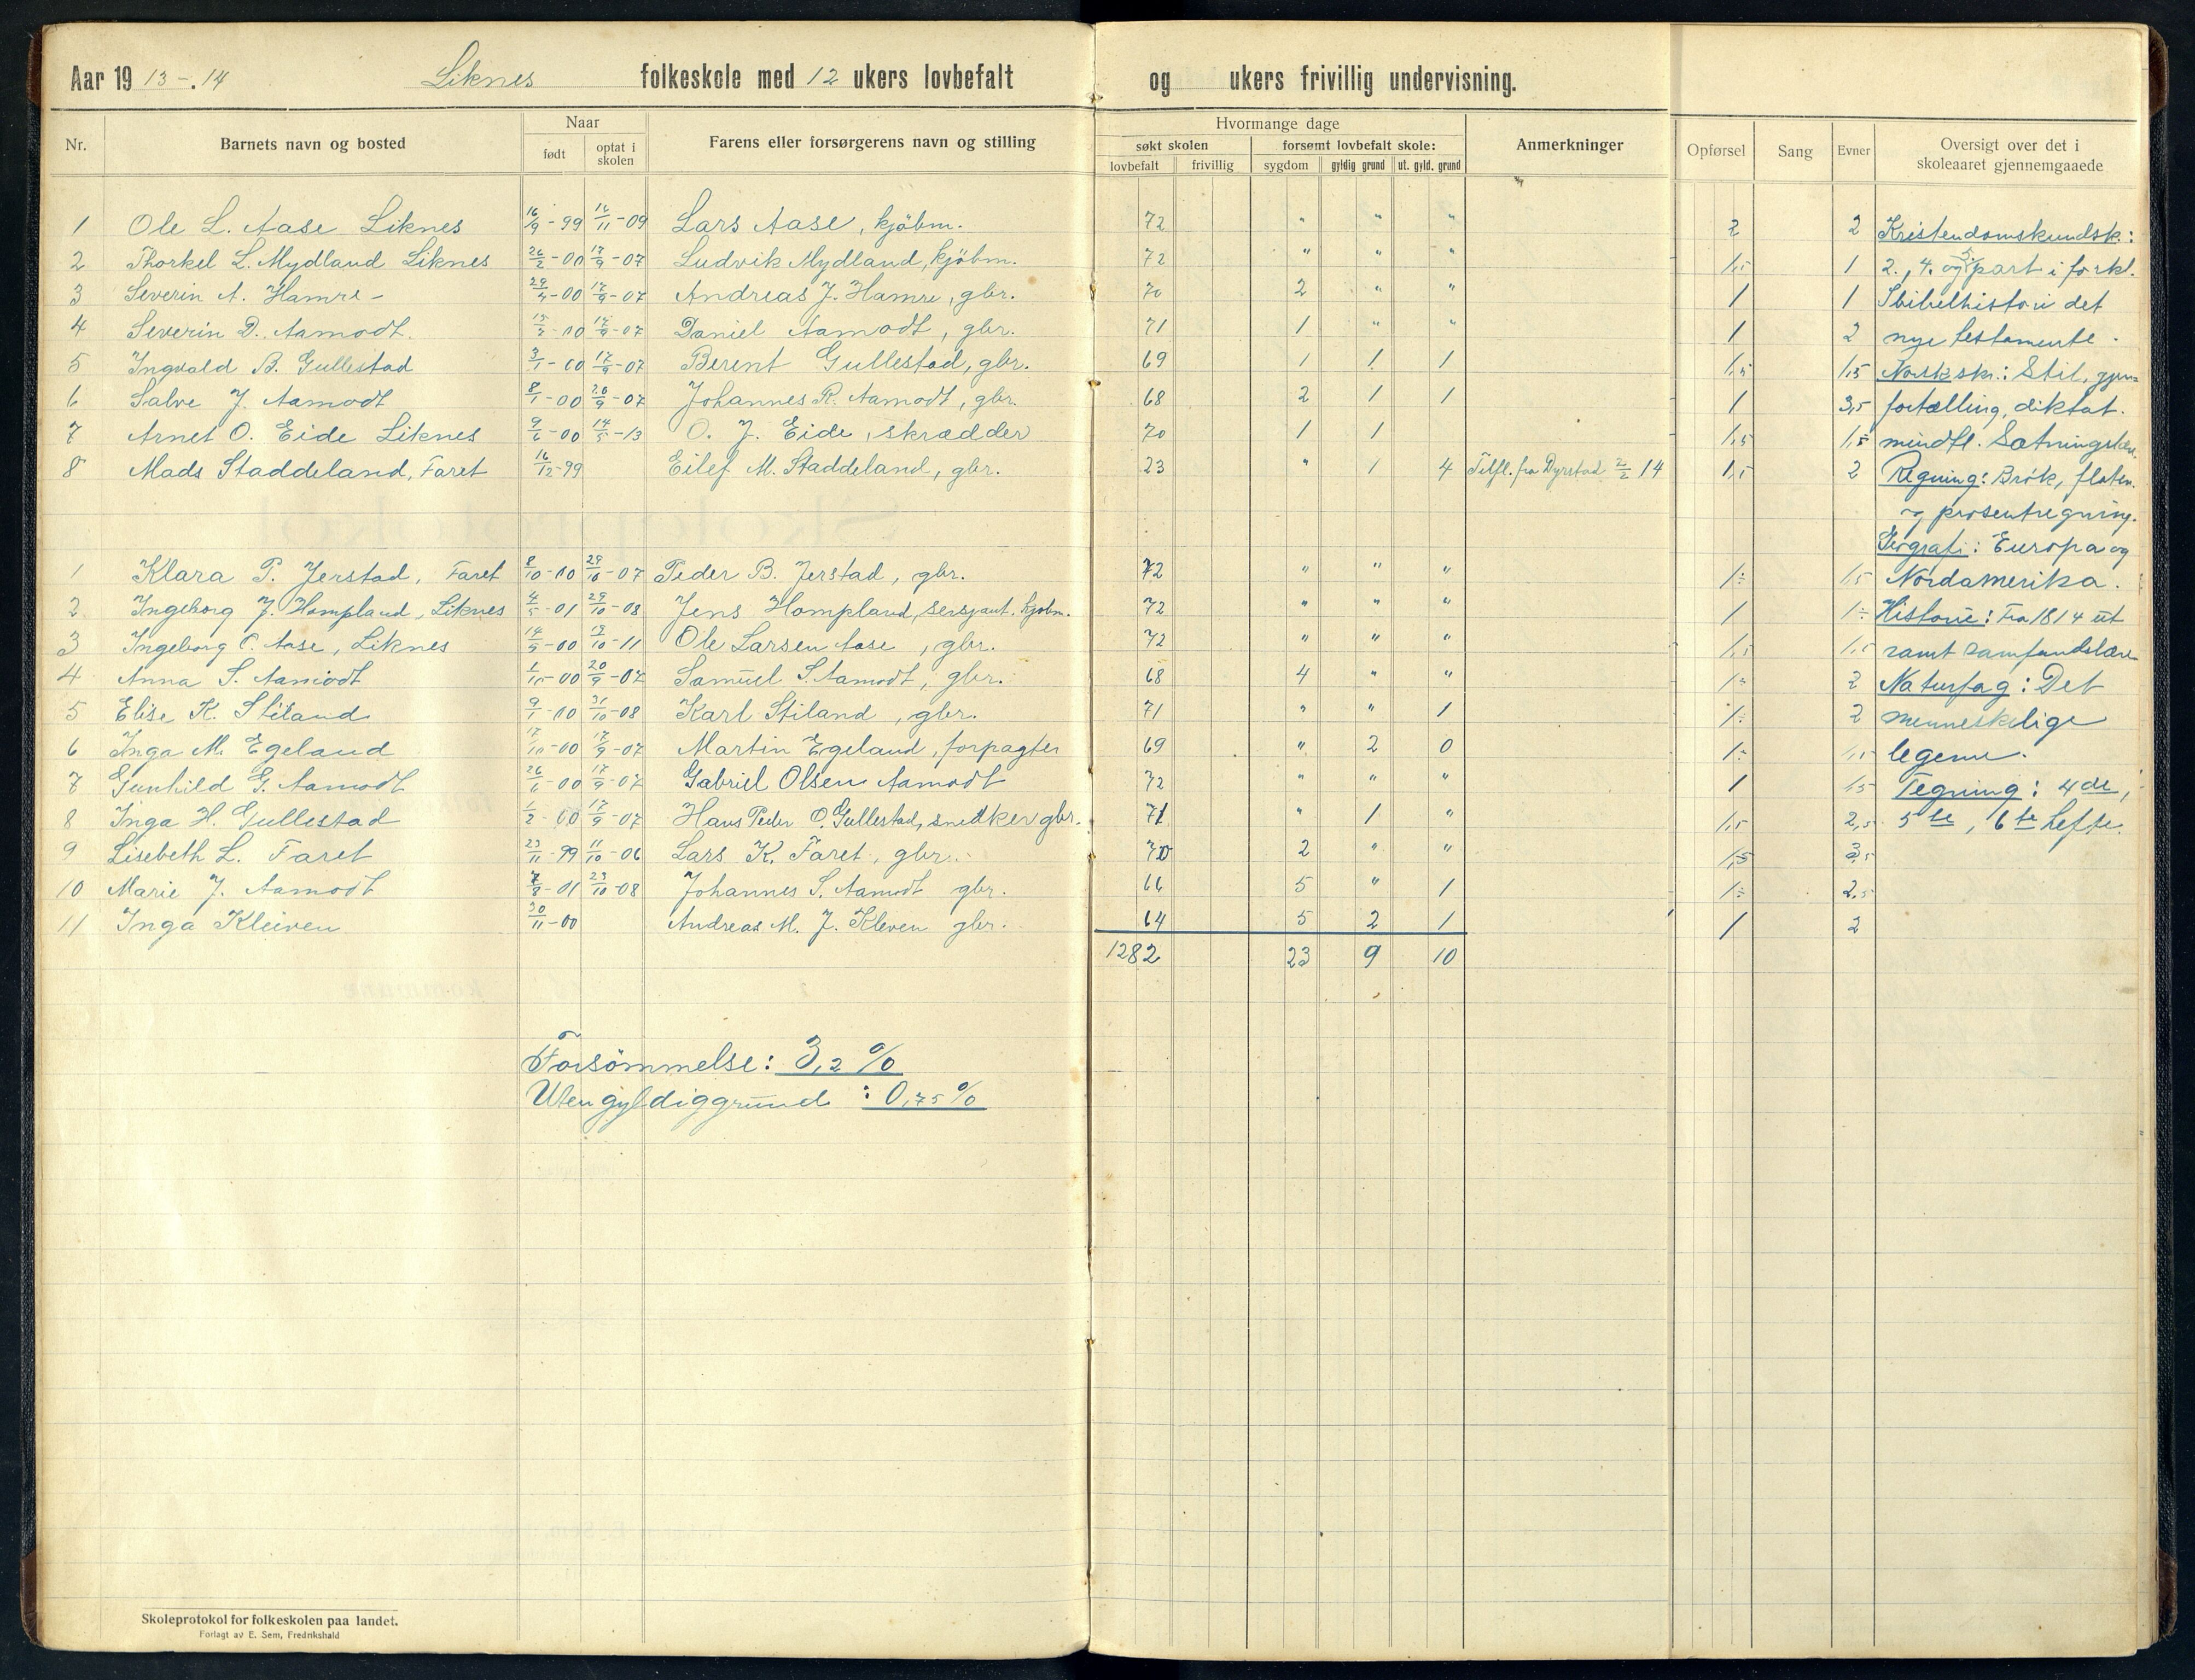 Aar 1913-.14 Liknes folkeskole med 12 ukers lovbefalt og ukers frivillig undervisning.
Nr. Barnets navn og bosted Naar født optat i skolen Farens eller forsørgerens navn og stilling Hvormange dage søkt skolen lovbefalt frivillig forsømt lovbefalt skole: sygdom gyldig grund ut. gyld. grund Anmerkninger Opførsel Sang Evner Oversigt over det i skoleaaret gjennemgaaede
1 Ole L. Aase Liknes 16/9-99 12/11-09 Lars Aase, kjøbm. 72 " " " 2 2 Kristendomskundsk.:
2 Thorkel L. Mydland Liknes 26/2-00 17/9-07 Ludvik Mydland, kjøbm. 72 " " " 1,5 1 2., 4. og 5. part i forkl.
3 Severin A. Hamre - 29/4-00 17/9-07 Andreas J. Hamre, gbr. 70 2 " " 1 1 I bibelhistorie det
4 Severin D. Aamodt. 15/3-00 17/9-07 Daniel Aamodt, gbr. 71 1 " " 1 2 nye testamente.
5 Ingvald B. Gullestad 3/1-00 17/9-07 Berent Gullestad, gbr. 69 1 1 1 1,5 1,5 Norsk sk.: Stil, gjen=
6 Salve J. Aamodt 8/1-00 20/9-07 Johannes R. Aamodt, gbr. 68 2 1 1 1 3,5 fortælling, diktat.
7 Arnet O. Eide Liknes 9/6-00 14/5-13 O. J. Eide, skrædder 70 1 1 1,5 1,5 mindtl. Sætningslære
8 Mads Staddeland, Faret 16/12-99 Eilef M. Staddeland, gbr. 23 " 1 4 Tilfl. fra Dyrstad 2/2 14 1,5 2 Regning: Brøk, flaten.
og prosentregning.
Geografi: Europa og
1 Klara P. Jerstad, Faret 8/10-00 29/10-07 Peder B. Jerstad, gbr. 72 " " " 1÷ 1,5 Nordamerika.
2 Ingeborg J. Hompland, Liknes 4/5-01 29/10-08 Jens Hompland, sersjant, kjøbm. 72 " " " 1 1÷ Historie: Fra 1814 ut
3 Ingeborg O. Aase, Liknes 14/9-00 19/10-11 Ole Larsen Aase, gbr. 72 " " " 1,5 1,5 samt samfundslære
4 Anna S. Aamodt 1/10-00 20/9-07 Samuel S. Aamodt, gbr. 68 4 " " 1÷ 2 Naturfag: Det
5 Elise K. Stiland 9/1-00 31/10-08 Karl Stiland, gbr. 71 " " 1 1÷ 2 menneskelige
6 Inga M. Egeland 17/10-00 17/9-07 Martin Egeland, forpagter 69 " 2 0 1÷ 1,5 legeme.
7 Gunhild G. Aamodt 26/6-00 17/9-07 Gabriel Olsen Aamodt 72 " " " 1 1,5 Tegning: 4de,
8 Inga H. Gullestad 1/2-00 17/9-07 Hans Peder O. Gullestad, snedker gbr. 71 " 1 " 1,5 2,5 5te, 6te hefte.
9 Lisebeth L. Faret 23/11-99 11/10-06 Lars K. Faret, gbr. 70 2 " " 1,5 3,5
10 Marie J. Aamodt 7/8-01 23/10-08 Johannes S. Aamodt gbr. 66 5 " 1 1÷ 2,5
11 Inga Kleiven 30/11-00 Andreas M. J. Kleven gbr. 64 5 2 1 1 2
1282 23 9 10
Forsømmelse: 3,2 %
Uten gyldiggrund : 0,75 %
Skoleprotokol for folkeskolen paa landet.
Forlagt av E. Sem, Fredrikshald